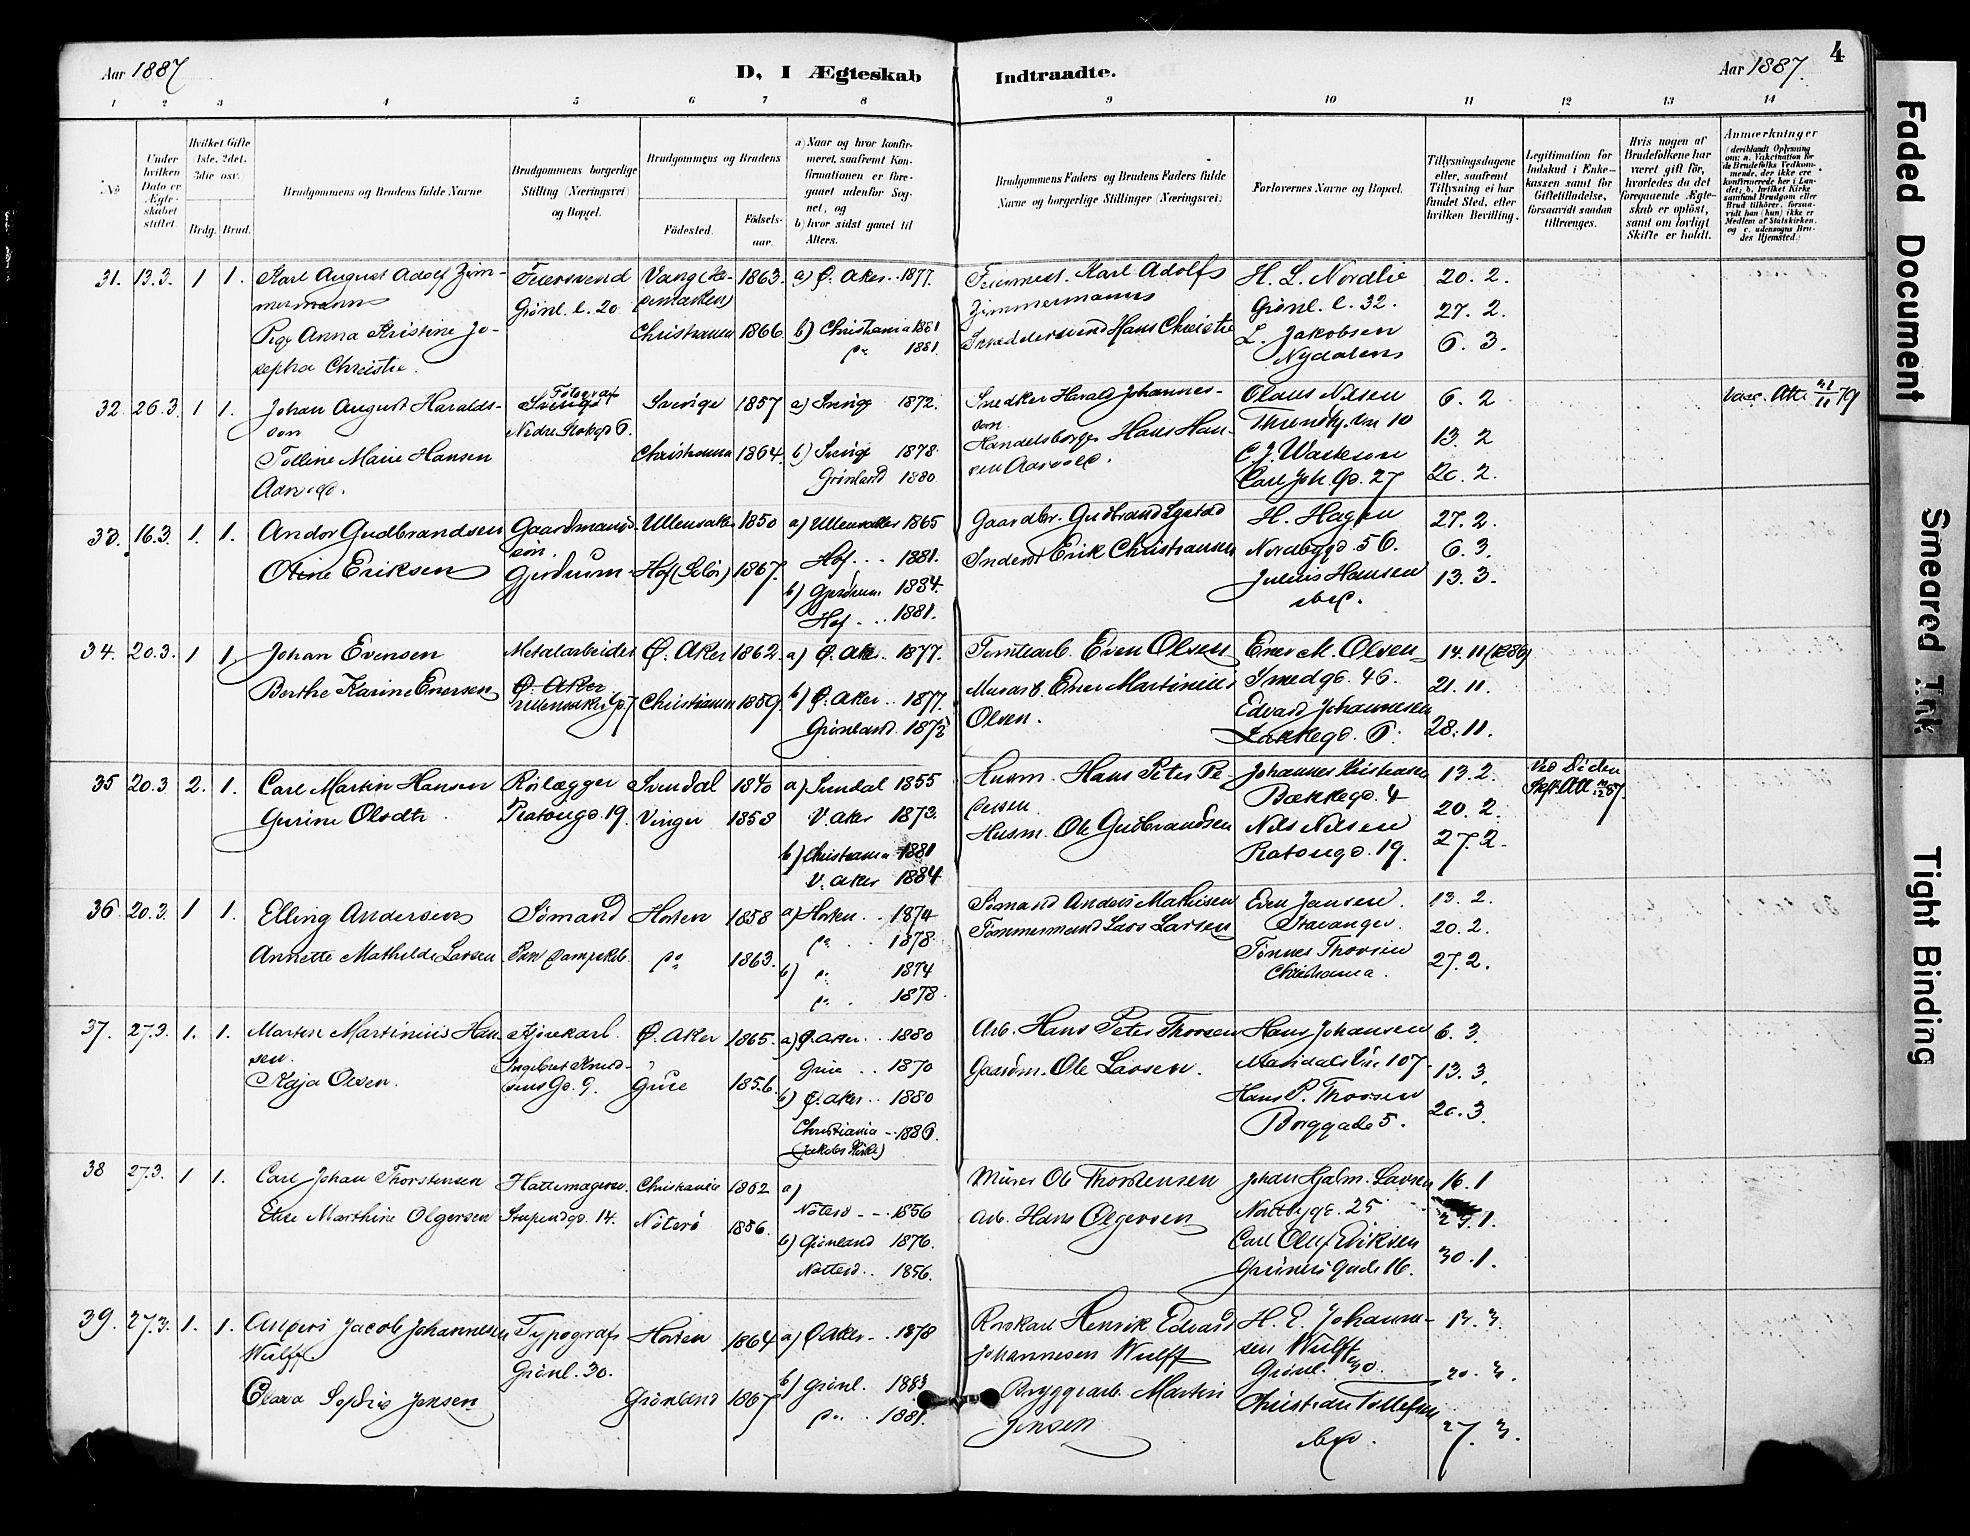 4
Aar 1887
D, I Ægteskab
Indtraadte.
Aar 1887.
1 2 3 4 5 6 7 8 9 10 11 12 13 14
No
Under hvilken Dato er Ægteskabet stiftet.
Hvilket Gifte 1ste, 2det, 3die osv.
Brdg. Brud.
Brudgommens og Brudens fulde Navne
Brudgommens borgerlige Stilling (Næringsvei) og Bopæl.
Brudgommens og Brudens
Fødested. Fødselsaar.
a) Naar og hvor konfirmeret, saafremt Konfirmationen er foregaaet udenfor Sognet, og
b) hvor sidst gaaet til Alters.
Brudgommens Faders og Brudens Faders fulde Navne og borgerlige Stillinger (Næringsvei)
Forlovernes Navne og Bopæl.
Tillysningsdagene eller, saafremt Tillysning ei har fundet Sted, efter hvilken Bevilling.
Legitimation for Indskud i Enkekassen samt for Giftetilladelse, forsaavidt saadan tiltrænges.
Hvis nogen af Brudefolkene har været gift før, hvorledes da det foregaaende Ægteskab er opløst, samt om lovligt Skifte er holdt.
Anmærkninger
31. 13.3. 1 1. Karl August Adolf Zimmermann
Feiersvend Grönl. l. 20
Vang (Hedemarken) 1863
a) Ø. Aker 1877.
Pige Anna Kristine Josepha Christie.
Christiania 1866.
b) Christiania 1881
do 1881
Feiermest. Karl Adolf Zimmermann
Skræddersvend Hans Christie
H. L. Nordlie
Grönl. l. 32.
L. Jakobsen
Nydalen
20. 2.
27. 2.
6. 3.
32. 26.3. 1 1. Johan August Haraldsson
Fotograf
Nedre Slotsgd 6.
Sverige 1857
a) Sverige 1872.
Tolline Marie Hansen
Christiania 1864.
b) Sverige 1878.
Grönland 1880.
Snedker Harald Johannesson
Handelsborger Hans Hansen Aarvold.
Olaus Nilsen
10
Carl Joh. Gd. 27
6. 2
13. 2
20. 2.
Vacc. Att. 79
33. 16.3. 1. 1. Andor Gudbrandsen
Gaardmandssön. Gjerdrum
Ullensaker 1850
a) Ullensaker 1865
Hof 1881.
Otine Eriksen
Hof (Solör) 1867.
b) Gjerdrum 1884.
Hof 1881.
Gaardbr. Gudbrand
Inderst Erik Christiansen
H. Hagen
Nordbygd 56.
Julius Hansen
ibid.
27. 2.
6. 3.
13. 3.
34. 20.3. 1 1. Johan Evensen
Metalarbeider
Ø. Aker
Ø. Aker 1862.
a) Ø. Aker 1877.
Berthe Karine Enersen
Christiania 1859.
b) Ø. Aker 1877.
Grönland 1873
Tomtearb. Even Olsen
Murarb. Ener Martinius Olsen.
Ener M. Olsen
Smedgd. 46.
Edvard Johannesen
Lakkegd. 6.
14. 11 (1886)
21. 11.
28. 11.
35 20.3 2. 1. Carl Martin Hansen
Rörlægger
Platousgd. 19.
Sundal 1840
a) Sundal 1855
V. Aker 1873.
Gurine Olsdtr.
Vinger 1858
b) Christiania 1881
V. Aker 1884
Husm. Hans Peter Pedersen
Husm. Ole Gudbrandsen
Johannes Kristiansen
Bakkegd. 4
Nils Nilsen
Platousgd. 19.
13. 2.
20. 2.
27. 2.
36. 20.3. 1 1. Elling Andersen
Sömand
Horten 1858
a) Horten 1874
do 1878.
Annette Mathilde Larsen
do 1863.
b) do 1874
do 1878.
Sömand Anders Mathisen
Tömmermand Lars Larsen
Even Jansen.
Stavanger.
Tönnes Thorsen
Christiania.
13. 2.
20. 2.
27. 2.
37. 27.3. 1. 1. Martin Martinius Hansen.
Kjörekarl.
Ingebret Knudsens Gd. 9.
Ø. Aker 1865.
a) Ø. Aker 1880
Grue 1870
Kaja Olsen.
Grue 1856.
b) Ø. Aker 1880
Christiania 1886.
(Jakobs Kirke)
Arb. Hans Peter Thorsen
Gaardm. Ole Larsen.
Hans Johansen
107
Hans P. Thorsen
Borggade 5.
6. 3.
13. 3.
20. 3.
38 27.3. 1 1. Carl Johan Thorstensen
Hattemagersv.
Stupendgd. 14.
Christiania 1862
a)
Nöterö 1856
Elise Marthine Olgersen
Nöterö 1856.
b) Grönland 1876.
Nötterö 1856.
Murer Ole Thorstensen
Arb. Hans Olgersen
Johan Hjalm. Larsen
Nordbygd. 25
Carl Oluf Eriksen
Grüners gade 16.
16. 1
23. 1.
30. 1.
39. 27.3. 1. 1. Jacob Johannesen Wulff
Typograf
Grönl. 30.
Horten 1864
a) Ø. Aker 1878
Clara Sophie Jensen
Grönland 1867
b) Grönl. 1883
do 1881.
Henrik Edvard Johannesen Wulff
Bryggearb. Martin Jensen
H. E. Johannesen Wulff
Grönl. 30.
Christian Tollefsen
ibid.
13. 3.
20. 3.
27. 3.
Faded Document
Smeared Ink
Tight Binding